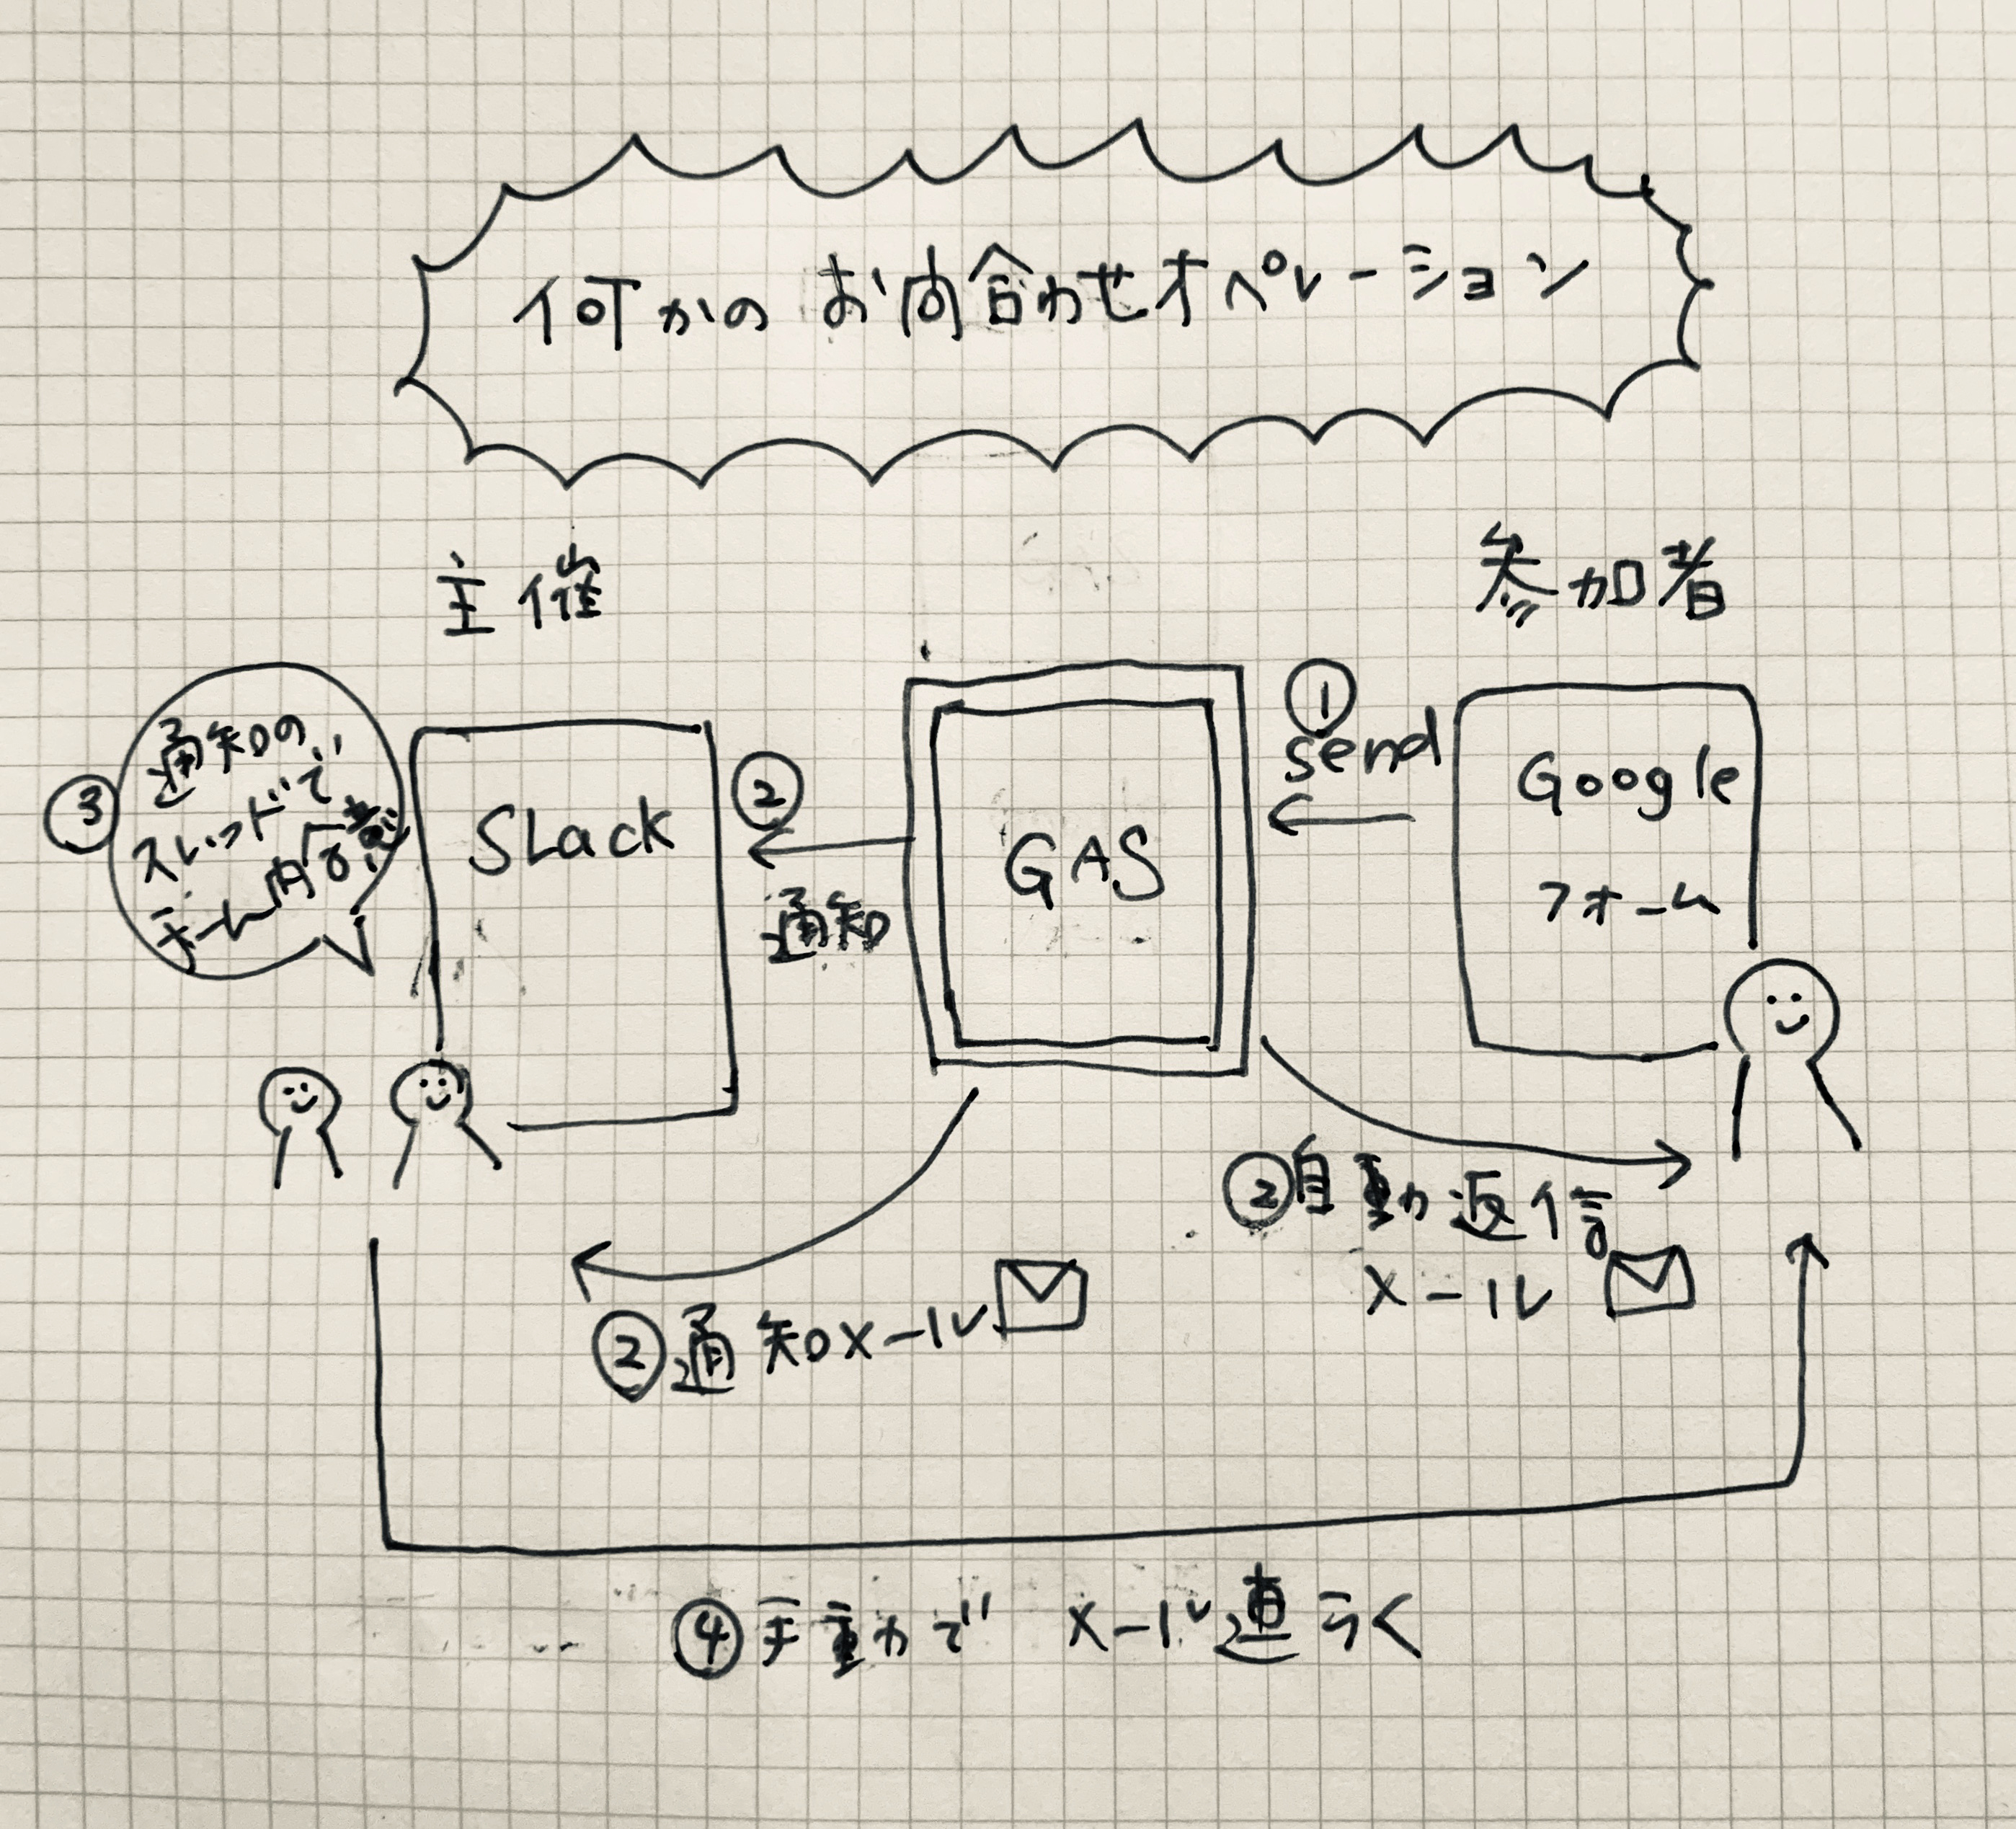 何かのお問合わせオペレーション
主催
参加者
③
通知の
スレッドで
チーム内合意
Slack
②
通知
GAS
①
send
Google
フォーム
②自動返信
メール
②通知メール
④手動でメール連らく